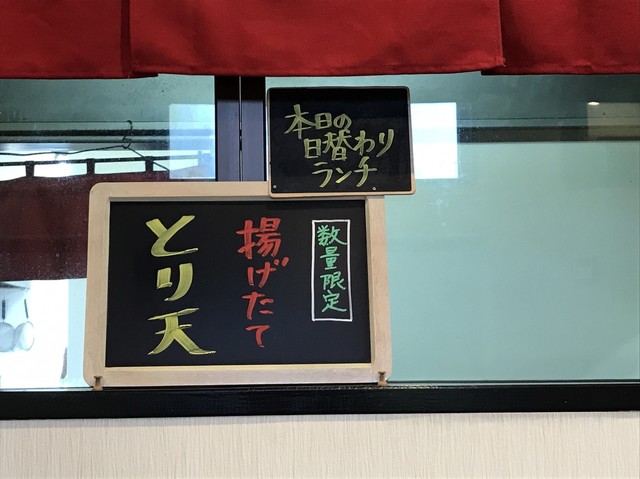 本日の
日替わり
ランチ
数量限定
揚げたて
とり天